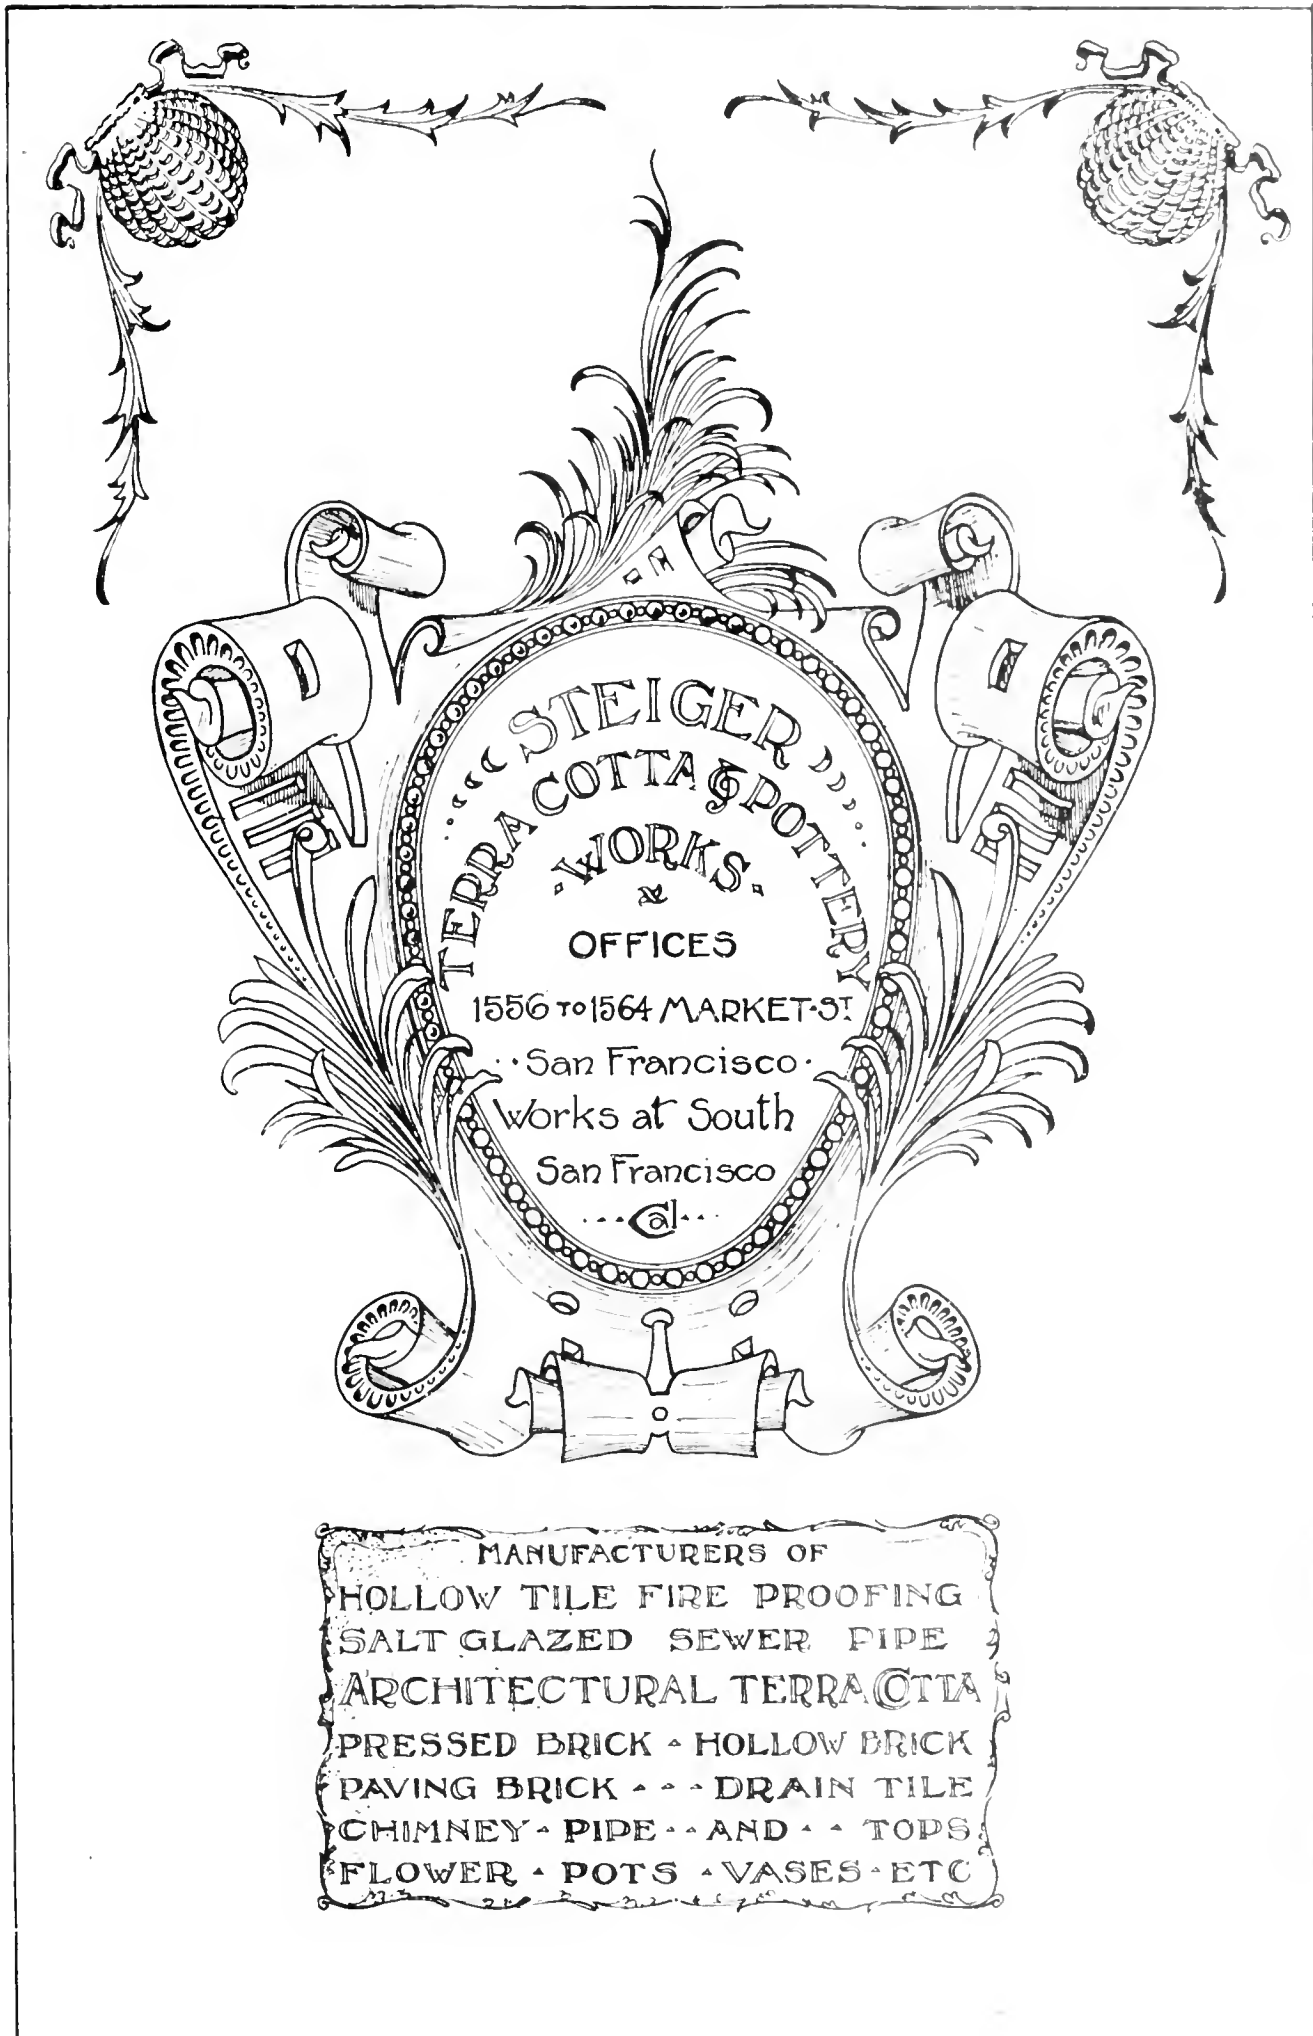 STEIGER
TERRA COTTA & POTTERY
·WORKS·
&
OFFICES
1556 TO 1564 MARKET·ST
··San Francisco·
Works at South
San Francisco
···Cal···
MANUFACTURERS OF
HOLLOW TILE FIRE PROOFING
SALT GLAZED SEWER PIPE
ARCHITECTURAL TERRA COTTA
PRESSED BRICK - HOLLOW BRICK
PAVING BRICK - - - DRAIN TILE
CHIMNEY - PIPE - - AND - - TOPS
FLOWER - POTS - VASES - ETC